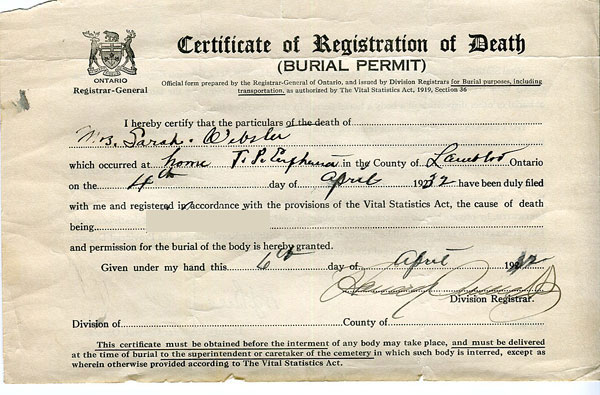 ONTARIO
Registrar-General
Certificate of Registration of Death
(BURIAL PERMIT)
Official form prepared by the Registrar-General of Ontario, and issued by Division Registrars for Burial purposes, including
transportation, as authorized by The Vital Statistics Act, 1919, Section 36
I hereby certify that the particulars of the death of
Mrs. Sarah Webster
which occurred at home in the County of Lambton Ontario
on the 4th day of April 1932 have been duly filed
with me and registered in accordance with the provisions of the Vital Statistics Act, the cause of death
being
and permission for the burial of the body is hereby granted.
Given under my hand this 6th day of April 1932
Division Registrar.
Division of County of
This certificate must be obtained before the interment of any body may take place, and must be delivered
at the time of burial to the superintendent or caretaker of the cemetery in which such body is interred, except as
wherein otherwise provided according to The Vital Statistics Act.